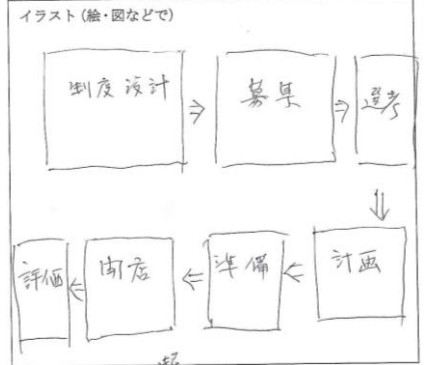 イラスト(絵・図などで)
制度設計 ⇒ 募集 ⇒ 選考
⇓
評価 ⇐ 開店 ⇐ 準備 ⇐ 計画